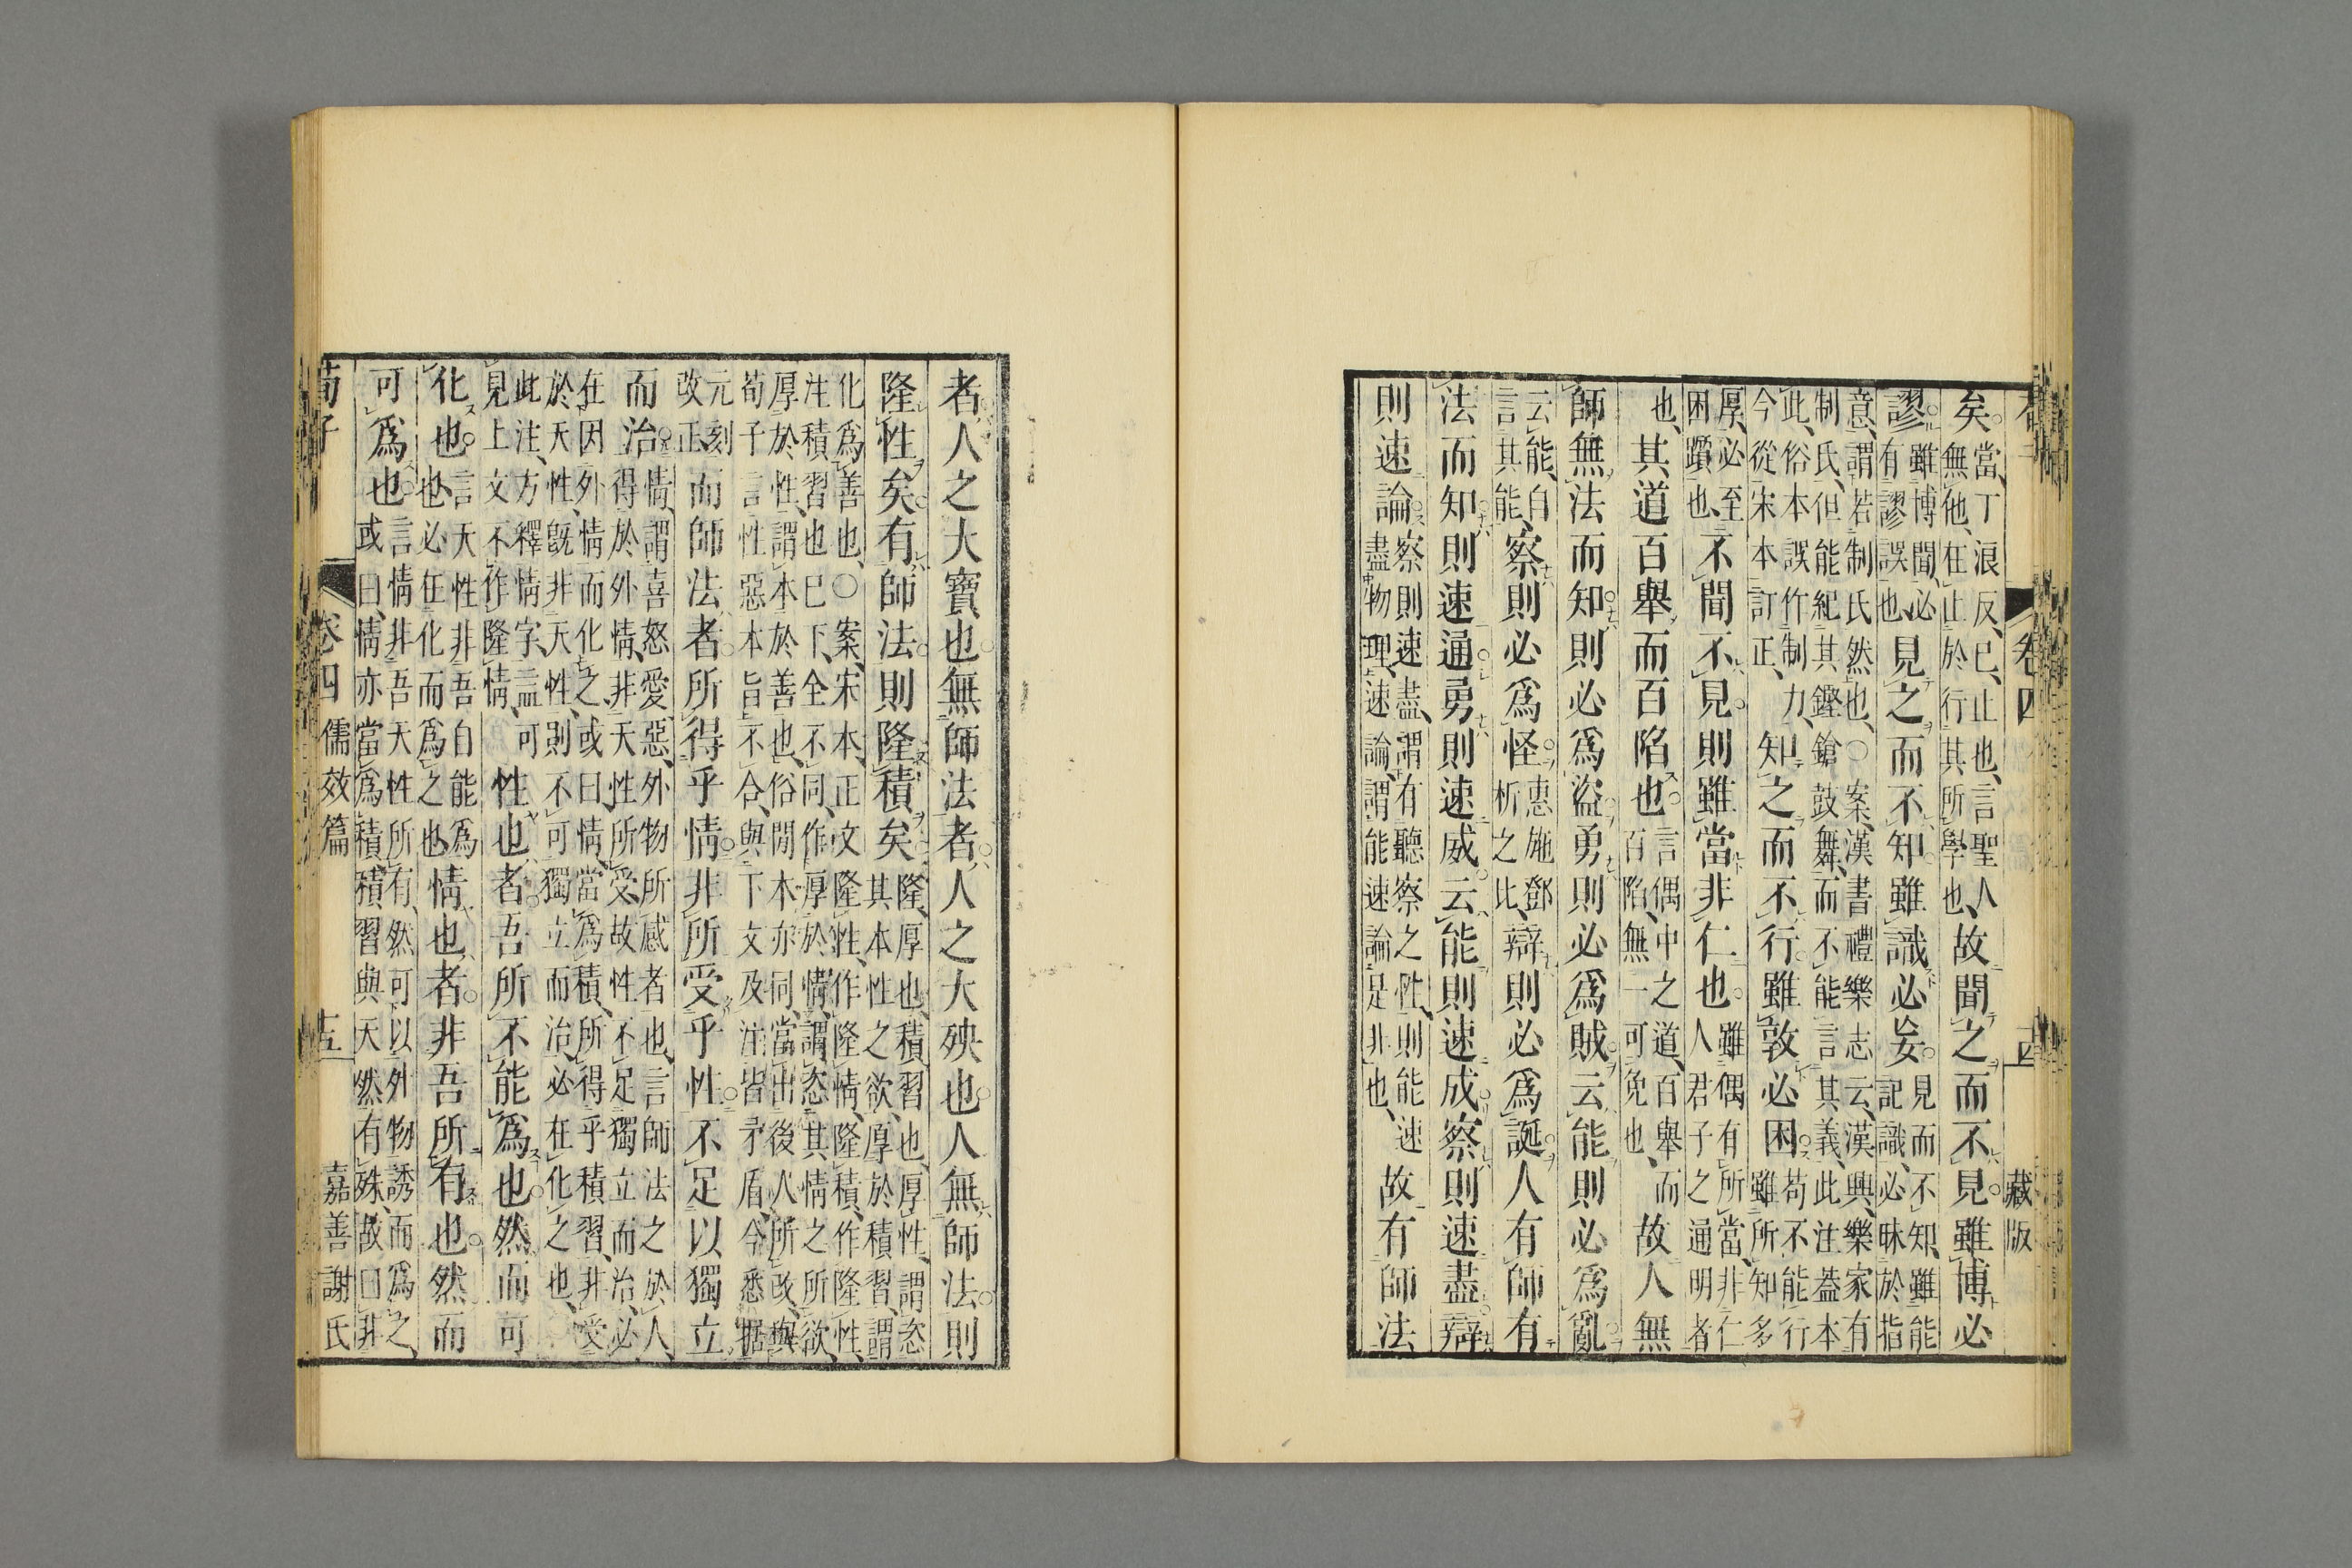 卷四
十四
藏版
矣
當丁浪反、已、止也、言聖人
無他、在止於行其所學也、
故聞之而不見雖博必
謬
雖博聞、必
有謬誤也、
見之而不知雖識必妄
見而不知、雖能
記識、必昧於指
意、謂若制氏然也、〇案漢書禮樂志云、漢興、樂家有
制氏、但能紀其鏗鎗鼓舞、而不能言其義、此注葢本
此、俗本誤作制力、
今從宋本訂正、
知之而不行雖敦必困
苟不能行
雖所知多
厚、必至
困躓也、
不聞不見則雖當非仁也
雖偶有所當、非仁
人君子之通明者
也、
其道百舉而百陷也
言偶中之道、百舉而
百陷、無一可免也、
故人無
師無法而知則必爲盜勇則必爲賊云能則必爲亂
云能、自
言其能、
察則必爲怪
惠施鄧
析之比、
辯則必爲誕人有師有
法而知則速通勇則速威云能則速成察則速盡辯
則速論
察則速盡、謂有聽察之性、則能速
盡物理、速論、謂能速論是非也、
故有師法
者人之大寶也無師法者人之大殃也人無師法則
隆性矣有師法則隆積矣
隆、厚也、積、習也、厚性、謂恣
其本性之欲、厚於積習、謂
化爲善也、〇案宋本、正文隆性、作隆情、隆積、作隆性、
注積習也已下、全不同、作厚於情、謂恣其情之所欲、
厚於性、謂本於善也、俗閒本亦同、當出後人所改、與
荀子言性惡本旨不合、與下文及注皆矛盾、今悉据
元刻
改正、
而師法者所得乎情非所受乎性不足以獨立
而治
情、謂喜怒愛惡、外物所感者也、言師法之於人、
得於外情、非天性所受、故性不足獨立而治、必
在因外情而化之、或曰、情當爲積、所得乎積習、非受
於天性、既非天性、則不可獨立而治、必在化之也、
此注、方釋情字、葢可
見上文不作隆情、
性也者吾所不能爲也然而可
化也
言天性非吾自能爲
也、必在化而爲之也、
情也者非吾所有也然而
可爲也
言情非吾天性所有、然可以外物誘而爲之、
或曰、情亦當爲積、積習與天然有殊、故曰非
荀子
卷四
儒效篇
十五
嘉善謝氏